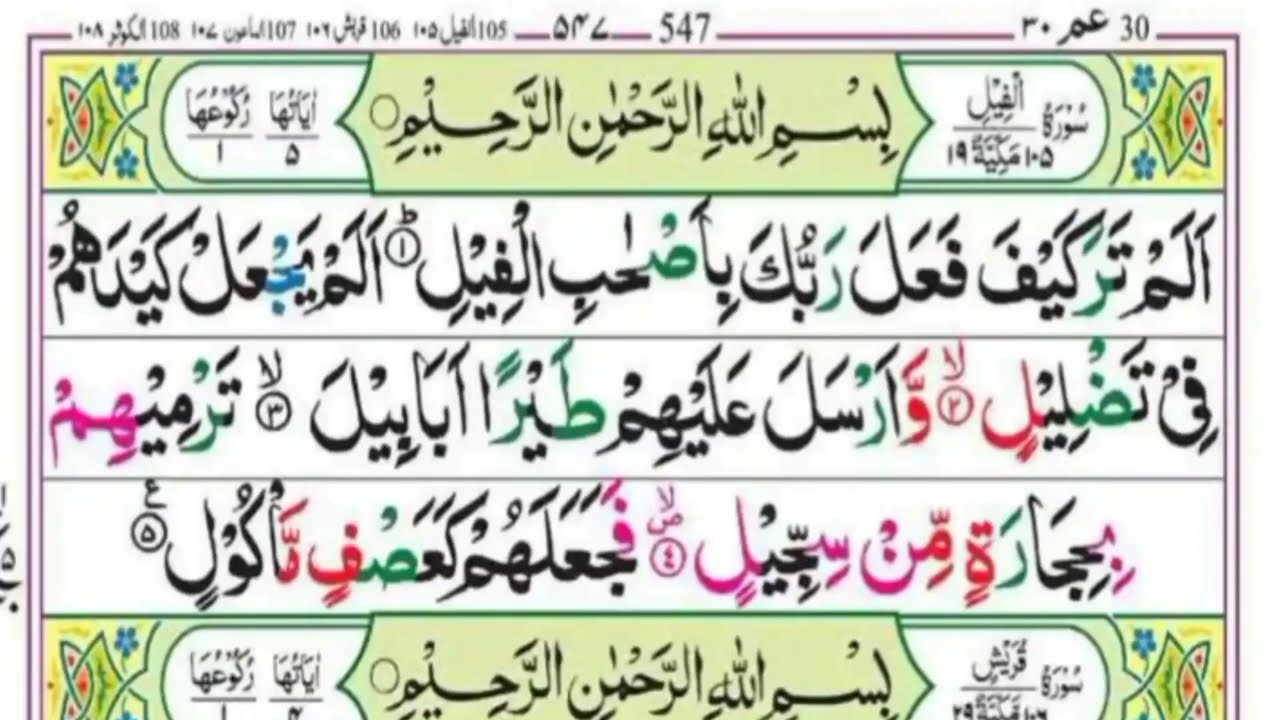 30 عم ۳۰ 547 ۵۴۷ 105 الفیل ۱۰۵ 106 قریش ۱۰۶ 107 الماعون ۱۰۷ 108 الکوثر ۱۰۸
سُوْرَةُ الْفِيْلِ ۱۰۵ مَكِّيَّةٌ ۱۹ بِسْمِ اللّٰهِ الرَّحْمٰنِ الرَّحِيْمِ اٰيَاتُهَا ۵ رُكُوْعُهَا ۱
اَلَمْ تَرَ كَيْفَ فَعَلَ رَبُّكَ بِاَصْحٰبِ الْفِيْلِ ؕ﴿۱﴾ اَلَمْ يَجْعَلْ كَيْدَهُمْ
فِيْ تَضْلِيْلٍ ۙ﴿۲﴾ وَّاَرْسَلَ عَلَيْهِمْ طَيْرًا اَبَابِيْلَ ۙ﴿۳﴾ تَرْمِيْهِمْ
بِحِجَارَةٍ مِّنْ سِجِّيْلٍ ۪ۙ﴿۴﴾ فَجَعَلَهُمْ كَعَصْفٍ مَّاْكُوْلٍ ﴿۵﴾ ع
سُوْرَةُ قُرَيْشٍ ۱۰۶ مَكِّيَّةٌ ۲۹ بِسْمِ اللّٰهِ الرَّحْمٰنِ الرَّحِيْمِ اٰيَاتُهَا ۴ رُكُوْعُهَا ۱